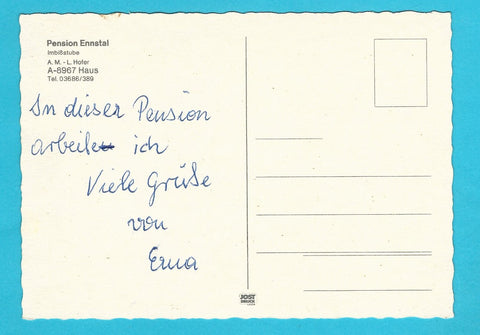 Pension Ennstal
Imbißstube
A. M. - L. Hofer
A-8967 Haus
Tel. 03686/389
In dieser Pension
arbeite ich
Viele Grüße
von
Erna
JOST
DRUCK